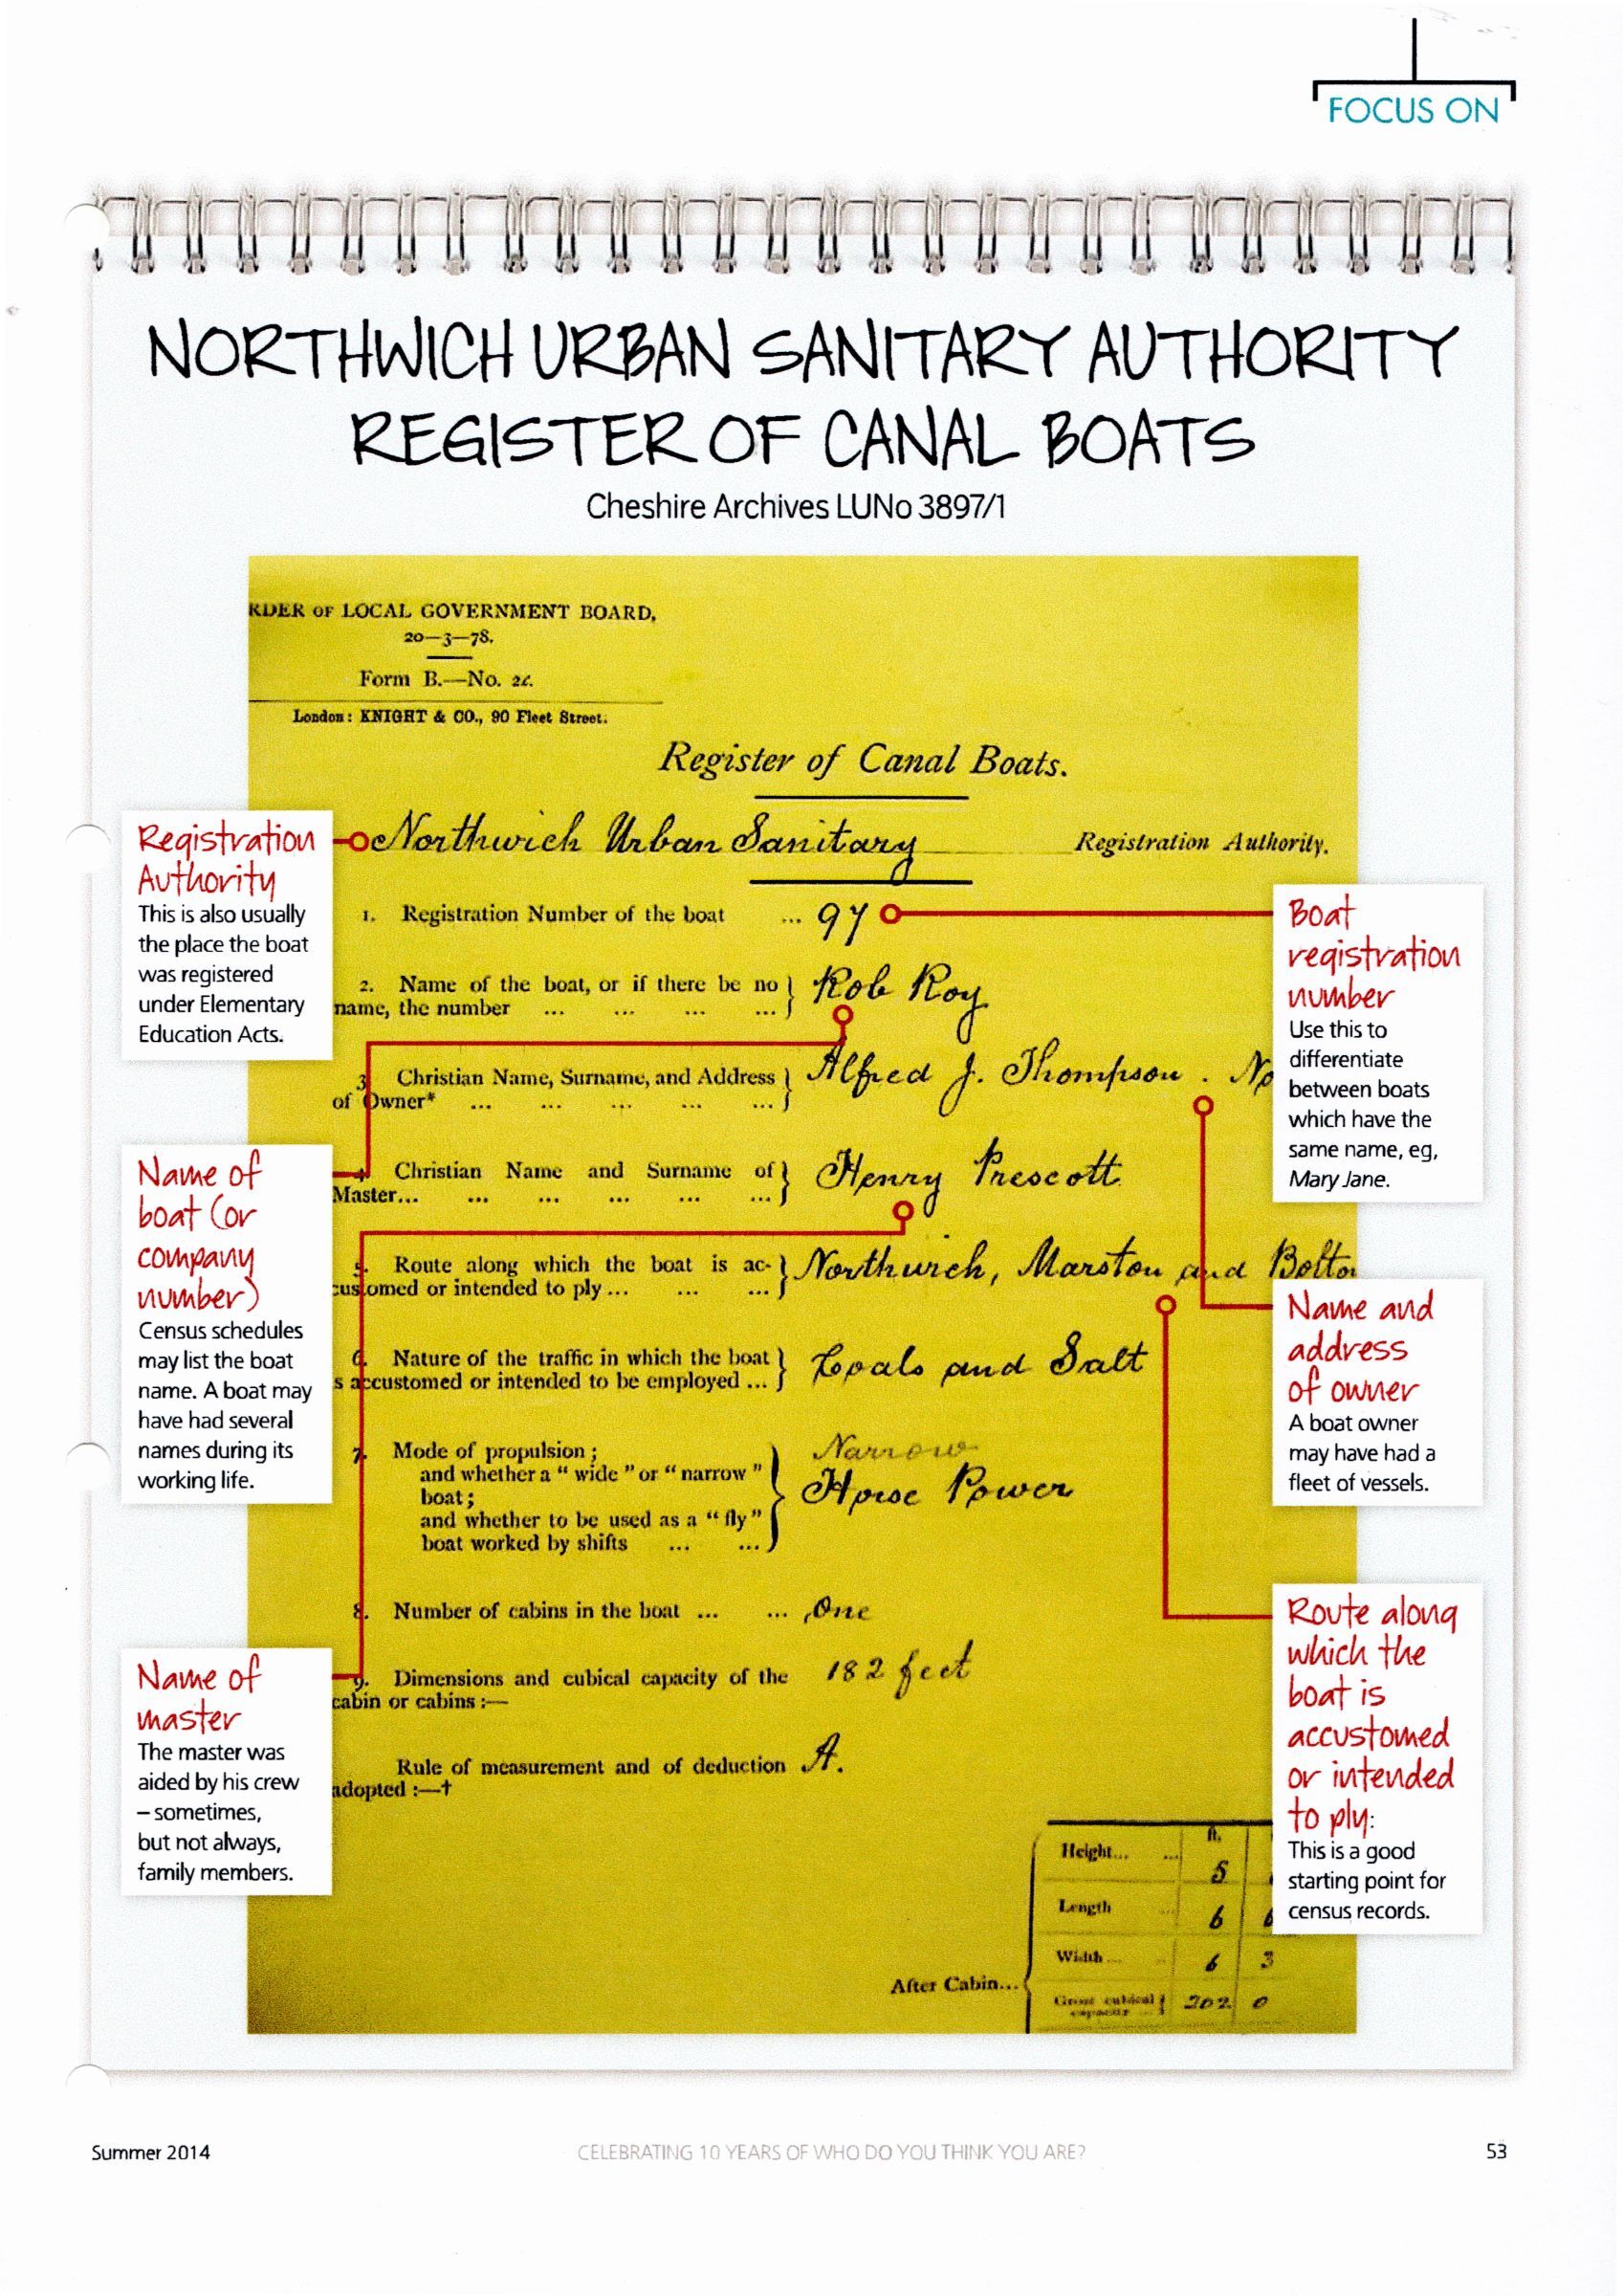 FOCUS ON
NORTHWICH URBAN SANITARY AUTHORITY
REGISTER OF CANAL BOATS
Cheshire Archives LUNo 3897/1
RDER OF LOCAL GOVERNMENT BOARD,
20—3—78.
Form B.—No.
London: KNIGHT & CO., 90 Fleet Street.
Register of Canal Boats.
Northwich Urban Sanitary Registration Authority.
1. Registration Number of the boat ... 97
2. Name of the boat, or if there be no
name, the number ... ... ... ... } Rob Roy
3 Christian Name, Surname, and Address
of Owner* ... ... ... ... ... } Alfred J. Thompson . No
4 Christian Name and Surname of
Master... ... ... ... ... ... } Henry Prescott
5. Route along which the boat is ac-
customed or intended to ply ... ... ... } Northwich, Marston and Bolton
6. Nature of the traffic in which the boat
s accustomed or intended to be employed ... } Coals and Salt
7. Mode of propulsion;
and whether a "wide" or "narrow"
boat;
and whether to be used as a "fly"
boat worked by shifts ... ... }
Narrow
Horse Power
8. Number of cabins in the boat ... ... One
9. Dimensions and cubical capacity of the
cabin or cabins :—
182 feet
Rule of measurement and of deduction
adopted :—†
A.
ft.
Height... ... 5
Length ... 6 6
Width ... 6 3
After Cabin...
Gross cubical
capacity ... } 202 0
Registration
Authority
This is also usually
the place the boat
was registered
under Elementary
Education Acts.
Name of
boat (or
company
number)
Census schedules
may list the boat
name. A boat may
have had several
names during its
working life.
Name of
master
The master was
aided by his crew
– sometimes,
but not always,
family members.
Boat
registration
number
Use this to
differentiate
between boats
which have the
same name, eg,
Mary Jane.
Name and
address
of owner
A boat owner
may have had a
fleet of vessels.
Route along
which the
boat is
accustomed
or intended
to ply:
This is a good
starting point for
census records.
Summer 2014
CELEBRATING 10 YEARS OF WHO DO YOU THINK YOU ARE?
53